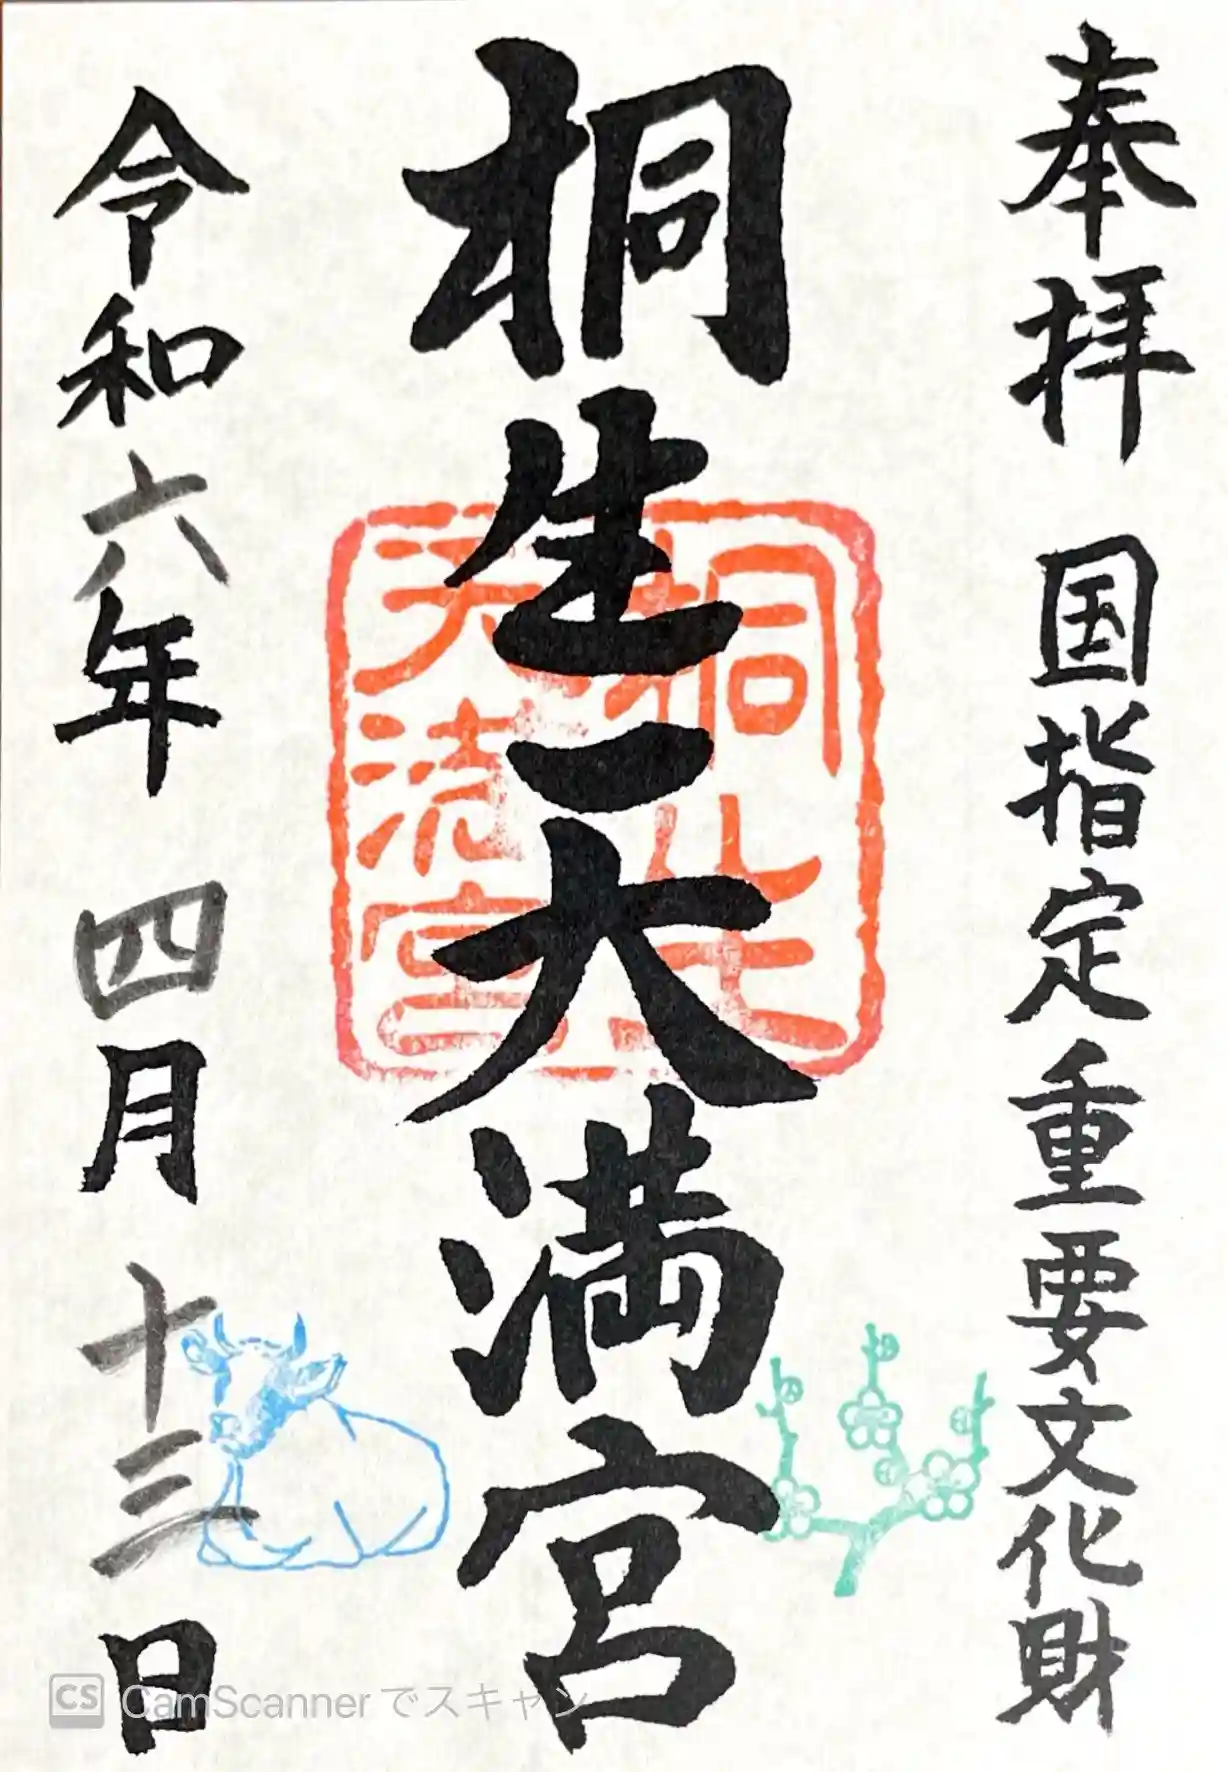 奉拝 国指定重要文化財
桐生天満宮
令和六年 四月 十三日
桐生
天満宮
CS CamScanner でスキャン